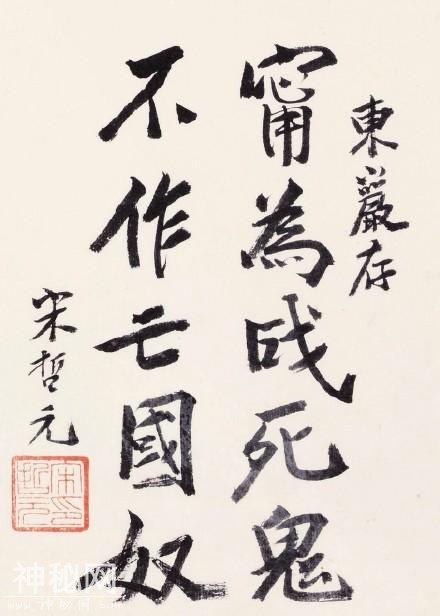 東巖存
甯為战死鬼
不作亡國奴
宋哲元
神秘网